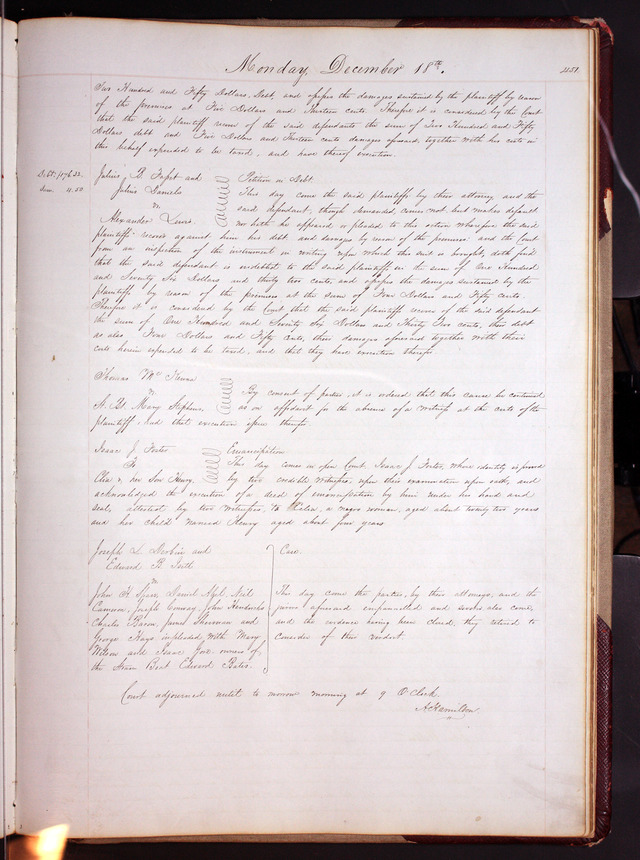 Monday, December 18th.
451
Two Hundred and Fifty Dollars, debt, and assess the damages sustained by the plaintiff by reason
of the premises at Five Dollars and Thirteen cents. Therefore it is considered by the Court
that the said plaintiff recover of the said defendants the sum of Two Hundred and Fifty
Dollars debt and Five Dollars and Thirteen cents damages aforesaid, together with his costs in
this behalf expended to be taxed, and have thereof execution.
Debt. 176.32.
Dam. 4.50
Julius, B. and
Julius Daniels
vs
Alexander Lewis.
Petition in Debt.
This day come the said plaintiffs by their attorney and the
said defendant, though demanded, comes not, but makes default
nor hath he appeared or pleaded to this action, wherefore the said
plaintiffs recover against him his debt, and damages by reason of the premises: and the Court
from an inspection of the instrument in writing upon which this suit is brought, doth find
that the said defendant is indebted to the said plaintiffs in the sum of One Hundred
and Seventy Six Dollars and thirty two cents, and assess the damages sustained by the
plaintiffs by reason of the premises at the sum of Four Dollars and Fifty cents.
Therefore it is considered by the Court that the said plaintiffs recover of the said defendant
the sum of One Hundred and Seventy Six Dollars and Thirty Two cents, their debt
as also Four Dollars and Fifty Cents, their damages aforesaid together with their
costs herein expended to be taxed, and that they have execution therefor.
Thomas Mc
vs
Mary Stephens.
By consent of parties, it is ordered that this cause be continued
as on affidavit for the absence of a witness at the costs of the
plaintiff, and that execution issue therefor.
Isaac J. Foster
To
& her Son Henry.
Emancipation
This day comes in open Court, Isaac J. Foster, whose identity is proved
by two credible witnesses, upon their examination upon oath, and
acknowledged the execution of a deed of emancipation by him under his hand and
seal, attested by two witnesses, to a negro woman, aged about twenty two years
and her child named Henry aged about four years
Joseph L. and
Edward B.
vs
John H. Daniel Neil
Cameron, Joseph Conway, John
Charles Bacon, James Sherman and
George impleaded with Mary
Wilson and Isaac owners of
the Steam Boat Edward Bates.
Case.
This day come the parties, by their attorneys, and the
jurors aforesaid empannelled and sworn also come,
and the evidence having been closed, they retired to
consider of their verdict.
Court adjourned until to morrow morning at 9 O'Clock
A. Hamilton